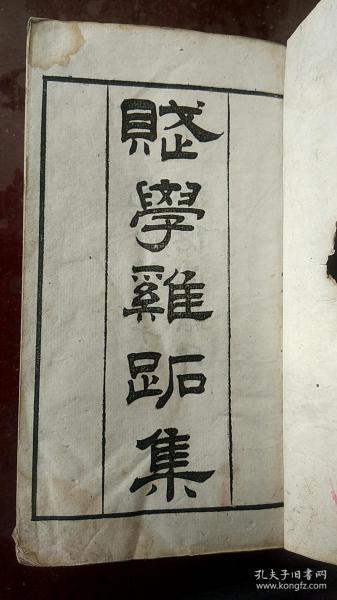 賦學雞跖集
孔夫子旧书网